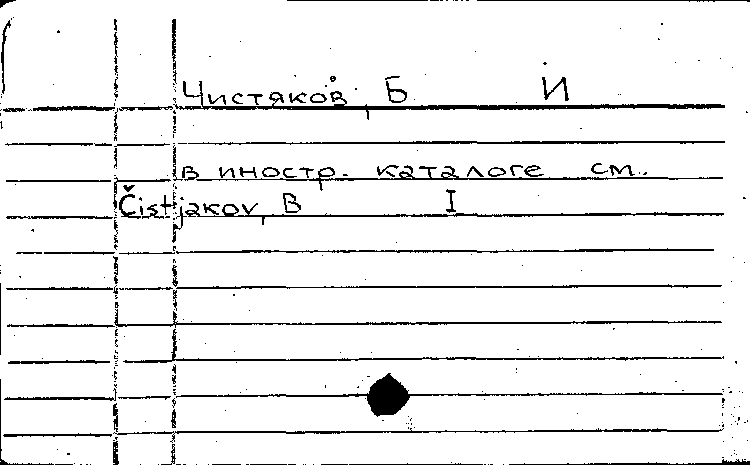 Чистяков, Б И
в иностр. каталоге см.
Čistjakov, B I